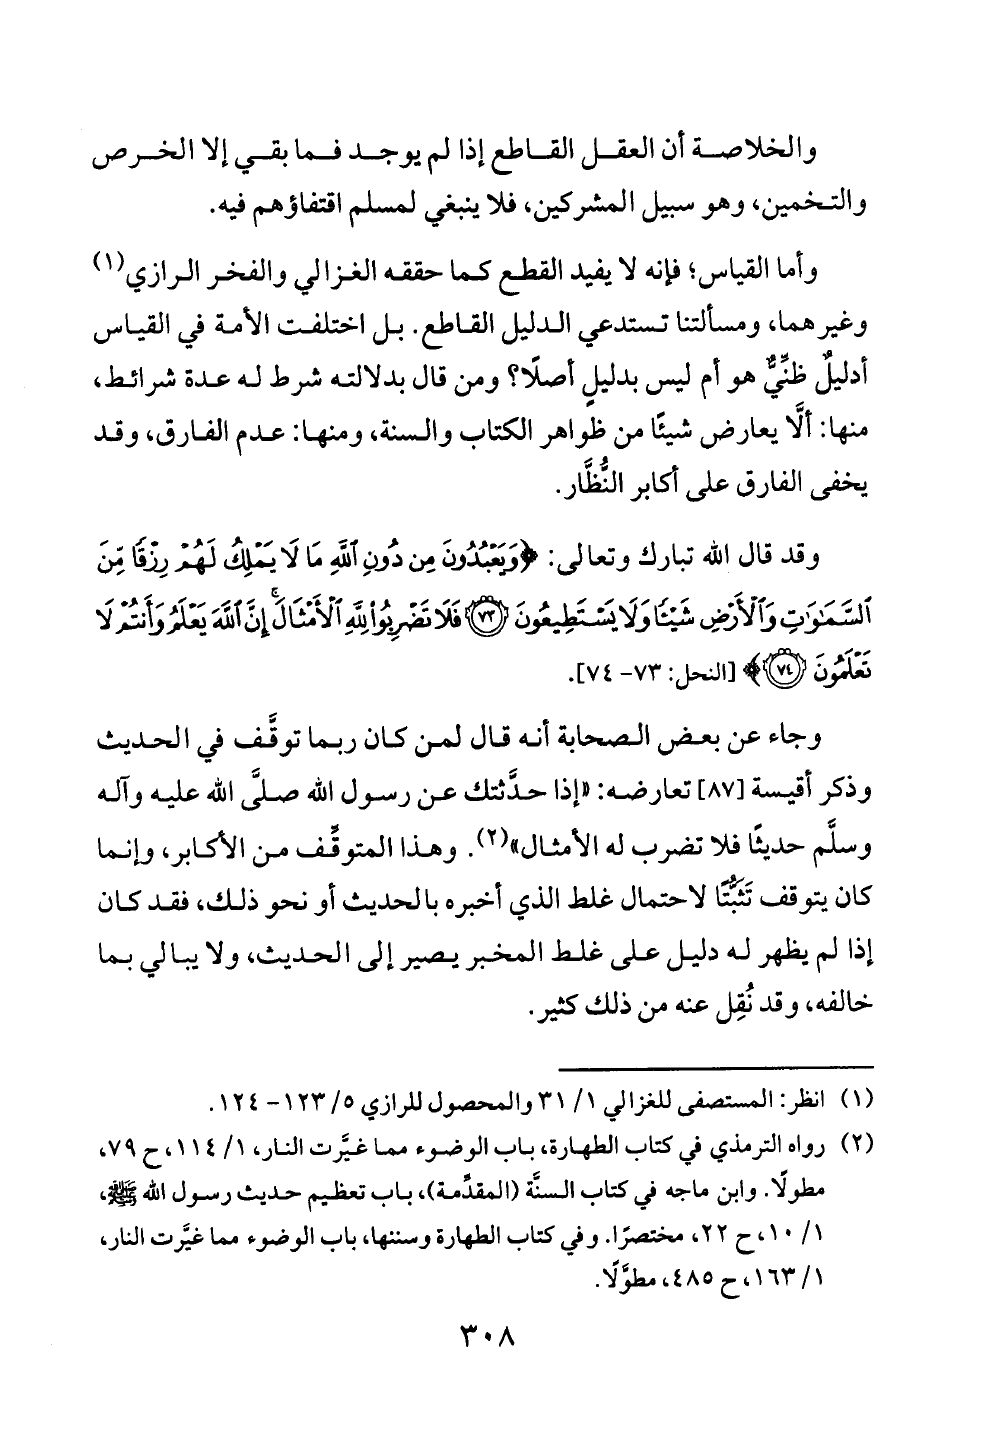 والخلاصة أن العقل القاطع إذا لم يوجد فما بقي إلا الخرص
والتخمين، وهو سبيل المشركين، فلا ينبغي لمسلم اقتفاؤهم فيه.
وأما القياس؛ فإنه لا يفيد القطع كما حققه الغزالي والفخر الرازي(١)
وغيرهما، ومسألتنا تستدعي الدليل القاطع. بل اختلفت الأمة في القياس
أدليلٌ ظنِّيٌّ هو أم ليس بدليلٍ أصلًا؟ ومن قال بدلالته شرط له عدة شرائط،
منها: ألَّا يعارض شيئًا من ظواهر الكتاب والسنة، ومنها: عدم الفارق، وقد
يخفى الفارق على أكابر النُّظَّار.
وقد قال الله تبارك وتعالى: ﴿وَيَعْبُدُونَ مِن دُونِ ٱللَّهِ مَا لَا يَمْلِكُ لَهُمْ رِزْقًا مِّنَ
ٱلسَّمَٰوَٰتِ وَٱلْأَرْضِ شَيْـًٔا وَلَا يَسْتَطِيعُونَ ۝٧٣ فَلَا تَضْرِبُوا۟ لِلَّهِ ٱلْأَمْثَالَ ۚ إِنَّ ٱللَّهَ يَعْلَمُ وَأَنتُمْ لَا
تَعْلَمُونَ ۝٧٤﴾ [النحل: ٧٣- ٧٤].
وجاء عن بعض الصحابة أنه قال لمن كان ربما توقَّف في الحديث
وذكر أقيسة [٨٧] تعارضه: «إذا حدَّثتك عن رسول الله صلَّى الله عليه وآله
وسلَّم حديثًا فلا تضرب له الأمثال»(٢). وهذا المتوقِّف من الأكابر، وإنما
كان يتوقف تَثَبُّتًا لاحتمال غلط الذي أخبره بالحديث أو نحو ذلك، فقد كان
إذا لم يظهر له دليل على غلط المخبر يصير إلى الحديث، ولا يبالي بما
خالفه، وقد نُقِل عنه من ذلك كثير.
(١) انظر: المستصفى للغزالي ١/ ٣١ والمحصول للرازي ٥/ ١٢٣- ١٢٤.
(٢) رواه الترمذي في كتاب الطهارة، باب الوضوء مما غيَّرت النار، ١/ ١١٤، ح ٧٩،
مطولًا. وابن ماجه في كتاب السنَّة (المقدِّمة)، باب تعظيم حديث رسول الله ﷺ،
١/ ١٠، ح ٢٢، مختصرًا. وفي كتاب الطهارة وسننها، باب الوضوء مما غيَّرت النار،
١/ ١٦٣، ح ٤٨٥، مطوَّلًا.
٣٠٨